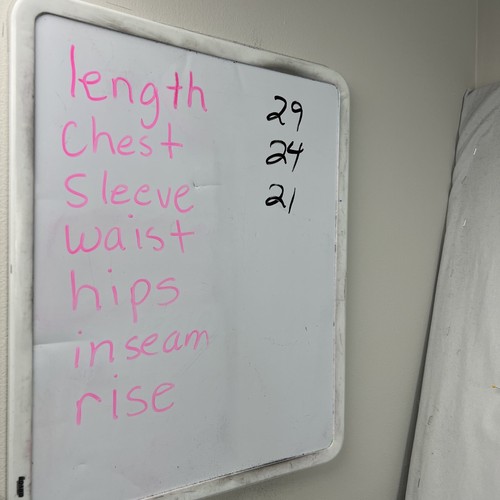 length 29
Chest 24
Sleeve 21
waist
hips
inseam
rise